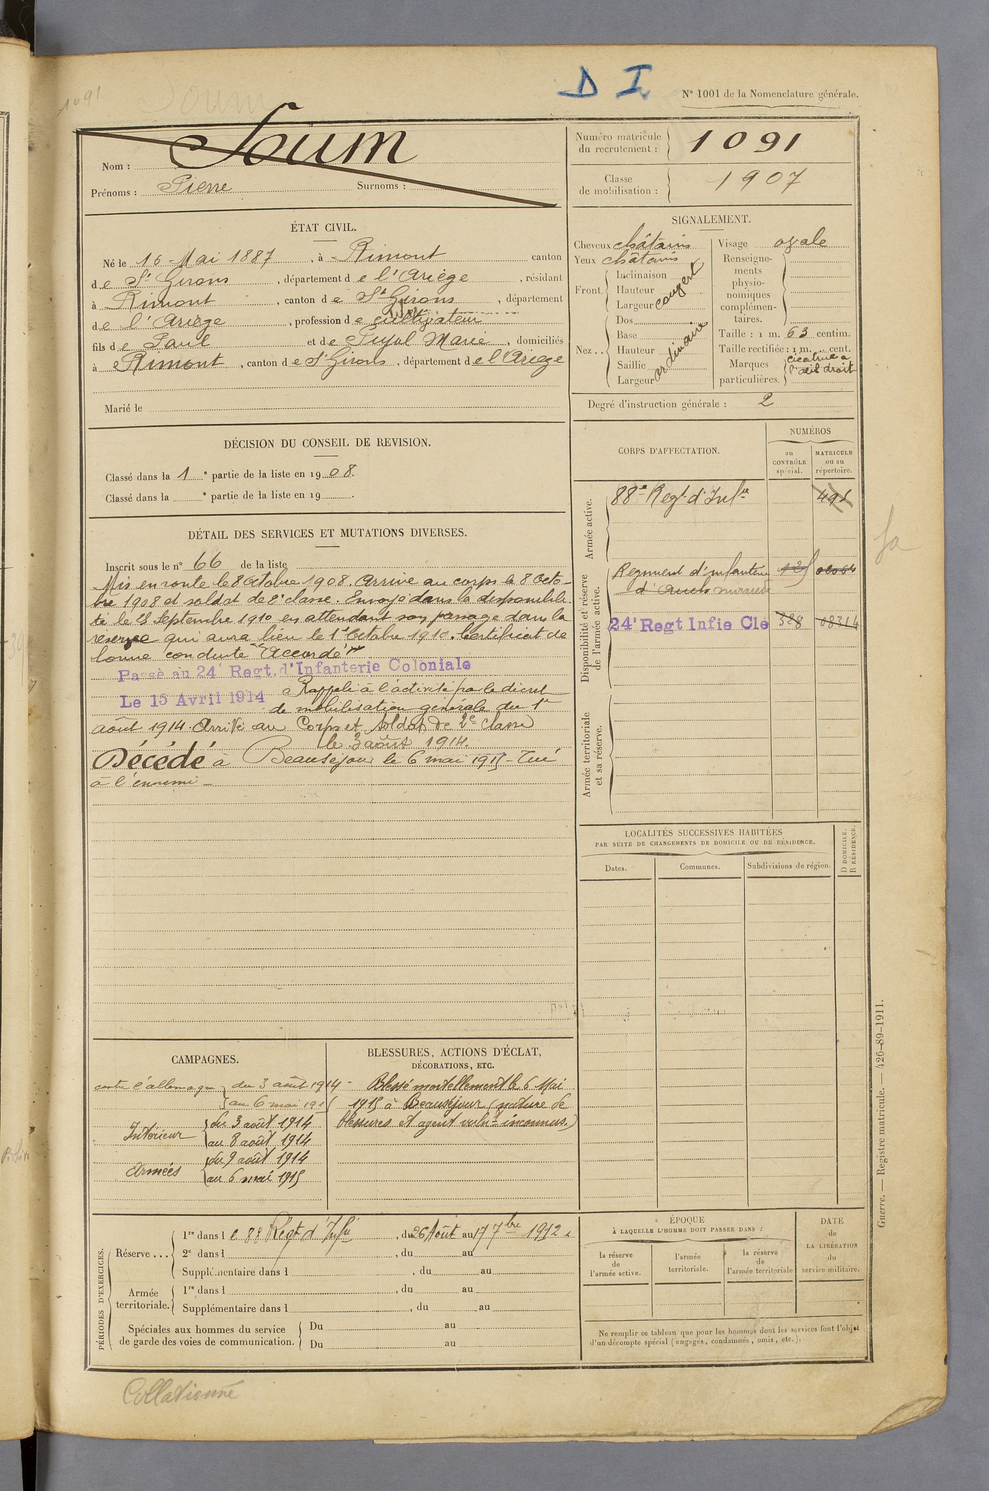 D I
N° 1001 de la Nomenclature générale.
1091
Nom : Soum
Prénoms : Pierre Surnoms :
Numéro matricule du recrutement : 1091
Classe de mobilisation : 1907
ÉTAT CIVIL.
Né le 16 Mai 1887, à Rimont canton
de St Girons, département de l'Ariège, résidant
à Rimont, canton de St Girons, département
de l'Ariège, profession de cultivateur
fils de Paul et de Pujol Marie, domiciliés
à Rimont, canton de St Girons, département de l'Ariège
Marié le
SIGNALEMENT.
Cheveux châtains
Yeux châtains
Front. Inclinaison
Hauteur
Largeur
Nez.. Dos
Base
Hauteur
Saillie
Largeur
ordinaire
Visage ovale
Renseignements physionomiques complémentaires.
Taille : 1 m. 63 centim.
Taille rectifiée : 1 m. cent.
Marques particulières. cicatrice à l'œil droit
Degré d'instruction générale : 2
DÉCISION DU CONSEIL DE REVISION.
Classé dans la 1e partie de la liste en 1908.
Classé dans la e partie de la liste en 19 .
DÉTAIL DES SERVICES ET MUTATIONS DIVERSES.
Inscrit sous le n° 66 de la liste
Mis en route le 8 Octobre 1908. Arrivé au corps le 8 Octo-
bre 1908 et soldat de 2e classe. Envoyé dans la disponibili-
té le Septembre 1910 en attendant son passage dans la
réserve qui aura lieu le 1er Octobre 1910. Certificat de
bonne conduite "Accordé"
Passé au 24e Regt. d'Infanterie Coloniale
Le 15 Avril 1914 Rappelé à l'activité par le décret
de mobilisation générale du 1er
août 1914. Arrivé au Corps et soldat de 2e classe
le 3 août 1914.
Décédé à Beauséjour le 6 mai 1915 - Tué
à l'ennemi -
CORPS D'AFFECTATION.
NUMÉROS
au CONTRÔLE spécial.
MATRICULE ou au répertoire.
Armée active.
88e Regt d'Infie 491
Disponibilité et réserve de l'armée active.
Régiment d'infanterie
24e Regt Infie Cle 588 08314
Armée territoriale et sa réserve.
LOCALITÉS SUCCESSIVES HABITÉES
PAR SUITE DE CHANGEMENTS DE DOMICILE OU DE RÉSIDENCE.
Dates. Communes. Subdivisions de région. D DOMICILE. R RÉSIDENCE.
CAMPAGNES.
contre l'allemagne du 3 août 1914
au 6 mai 1915
Intérieur du 3 août 1914
au 8 août 1914
Armées du 9 août 1914
au 6 mai 1915
BLESSURES, ACTIONS D'ÉCLAT,
DÉCORATIONS, ETC.
Blessé mortellement le 6 Mai
1915 à Beauséjour (nature de
blessures et agent vulnt inconnus.)
PÉRIODES D'EXERCICES.
Réserve... 1re dans l e 88 Regt d'Infie, du 26 Août au 17 7bre 1912
2e dans l , du au
Supplémentaire dans l , du au
Armée territoriale. 1re dans l , du au
Supplémentaire dans l , du au
Spéciales aux hommes du service de garde des voies de communication. Du au
Du au
ÉPOQUE
À LAQUELLE L'HOMME DOIT PASSER DANS :
la réserve de l'armée active.
l'armée territoriale.
la réserve de l'armée territoriale
DATE de LA LIBÉRATION du service militaire.
Ne remplir ce tableau que pour les hommes dont les services font l'objet
d'un décompte spécial (engagés, condamnés, omis, etc.).
Guerre. — Registre matricule. — 426-89-1911.
Collationné